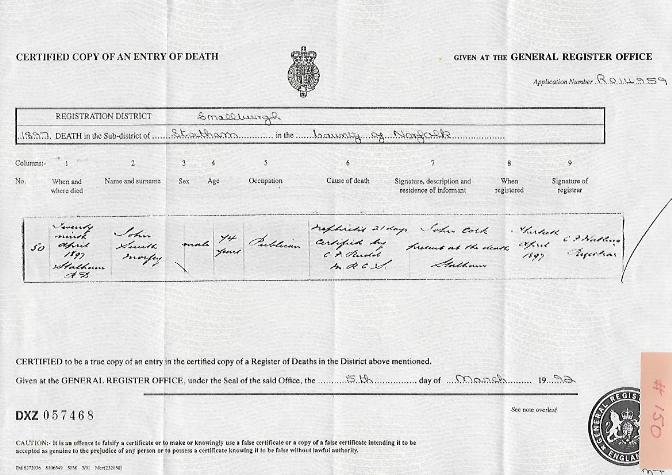 CERTIFIED COPY OF AN ENTRY OF DEATH
GIVEN AT THE GENERAL REGISTER OFFICE
Application Number R014959
REGISTRATION DISTRICT Smallburgh
1897 DEATH in the Sub-district of Stalham in the County of Norfolk
Columns:- 1 2 3 4 5 6 7 8 9
No. When and where died Name and surname Sex Age Occupation Cause of death Signature, description and residence of informant When registered Signature of registrar
50
Twenty ninth April 1897 Stalham
John Smith
male
74 years
Publican
Nephritis 21 days Certified by M.R.C.S.
John Cork present at the death Stalham
Thirtieth April 1897
Registrar
CERTIFIED to be a true copy of an entry in the certified copy of a Register of Deaths in the District above mentioned.
Given at the GENERAL REGISTER OFFICE, under the Seal of the said Office, the 5th day of March 1992
DXZ 057468
See note overleaf
CAUTION:- It is an offence to falsify a certificate or to make or knowingly use a false certificate or a copy of a false certificate intending it to be
accepted as genuine to the prejudice of any person or to possess a certificate knowing it to be false without lawful authority.
GENERAL REGISTER
ENGLAND
# 150